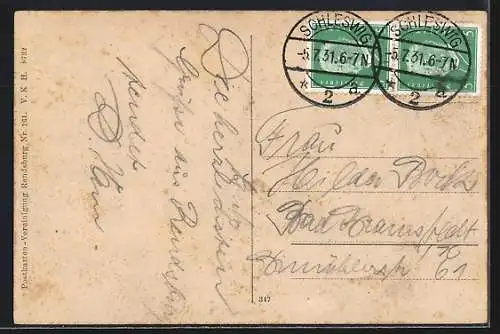 Die herzlichsten
Grüße aus Rendsburg
sendet
D.
Postkarten-Vereinigung Rendsburg Nr. 161. V. K. H. 8722
347
SCHLESWIG
-5.7.31.6-7N
* 2 a.
SCHLESWIG
-5.7.31.6-7N
* 2 a.
Frau
Hilda
Bad Bramstedt
61